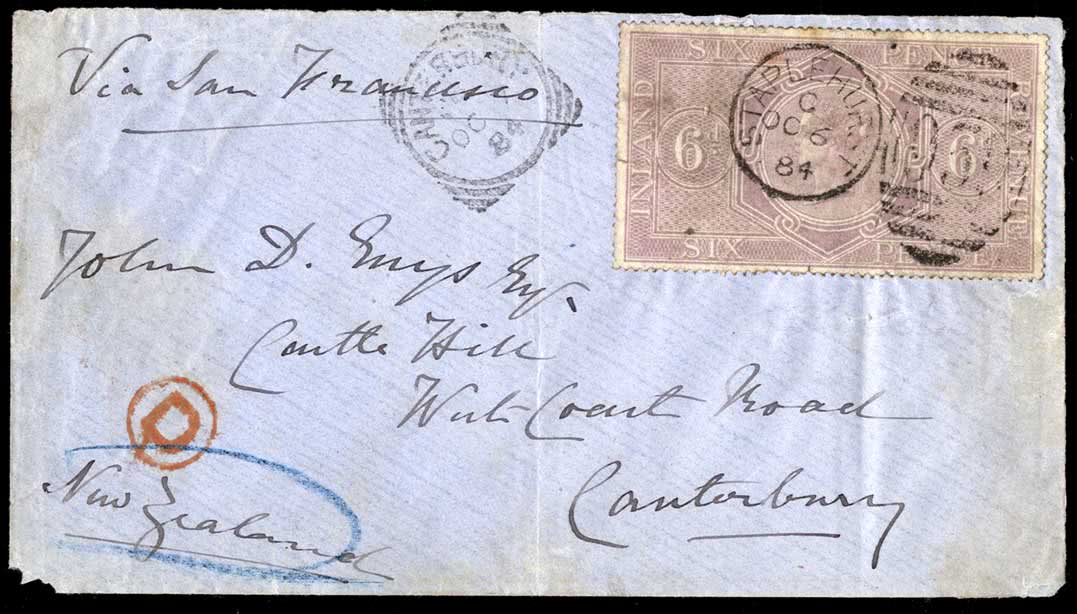 Via San Francisco
CANTERBURY
OC
84
SIX PENCE
INLAND
REVENUE
6d
6d
SIX PENCE
STAPLEHURST
C
OC 6
84
John D. Enys Esq.
Castle Hill
West Coast Road
Canterbury
New Zealand